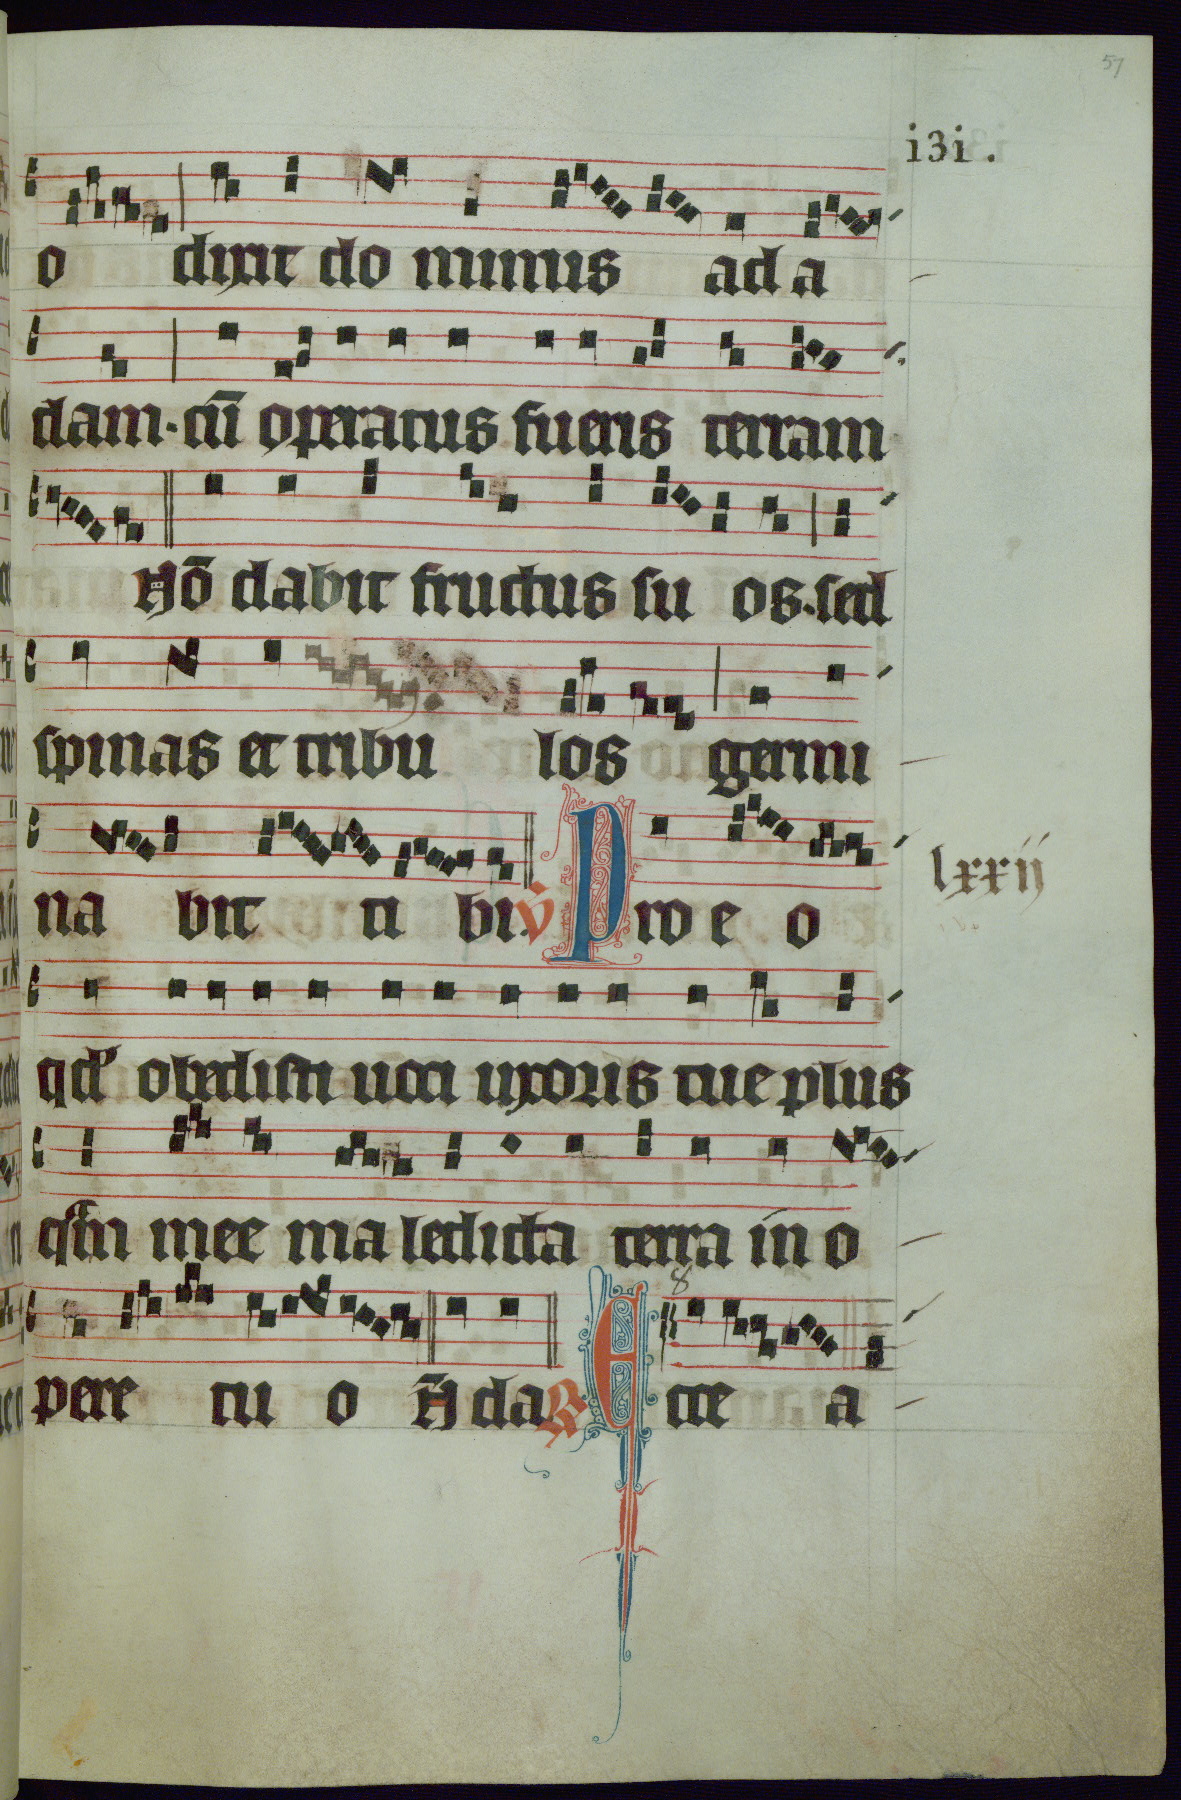 57
i3i.
o dixit do minus ad a
dam. cū operatus fueris terram
Nō dabit fructus su os. sed
spinas et tribu los germi
na bit ti bi. V̄ Pro e o
lxxij
qd' obedisti uoci uxoris tue plus
qᵃm mee ma ledicta terra in o
8
pere tu o N̄ da R Ecce a